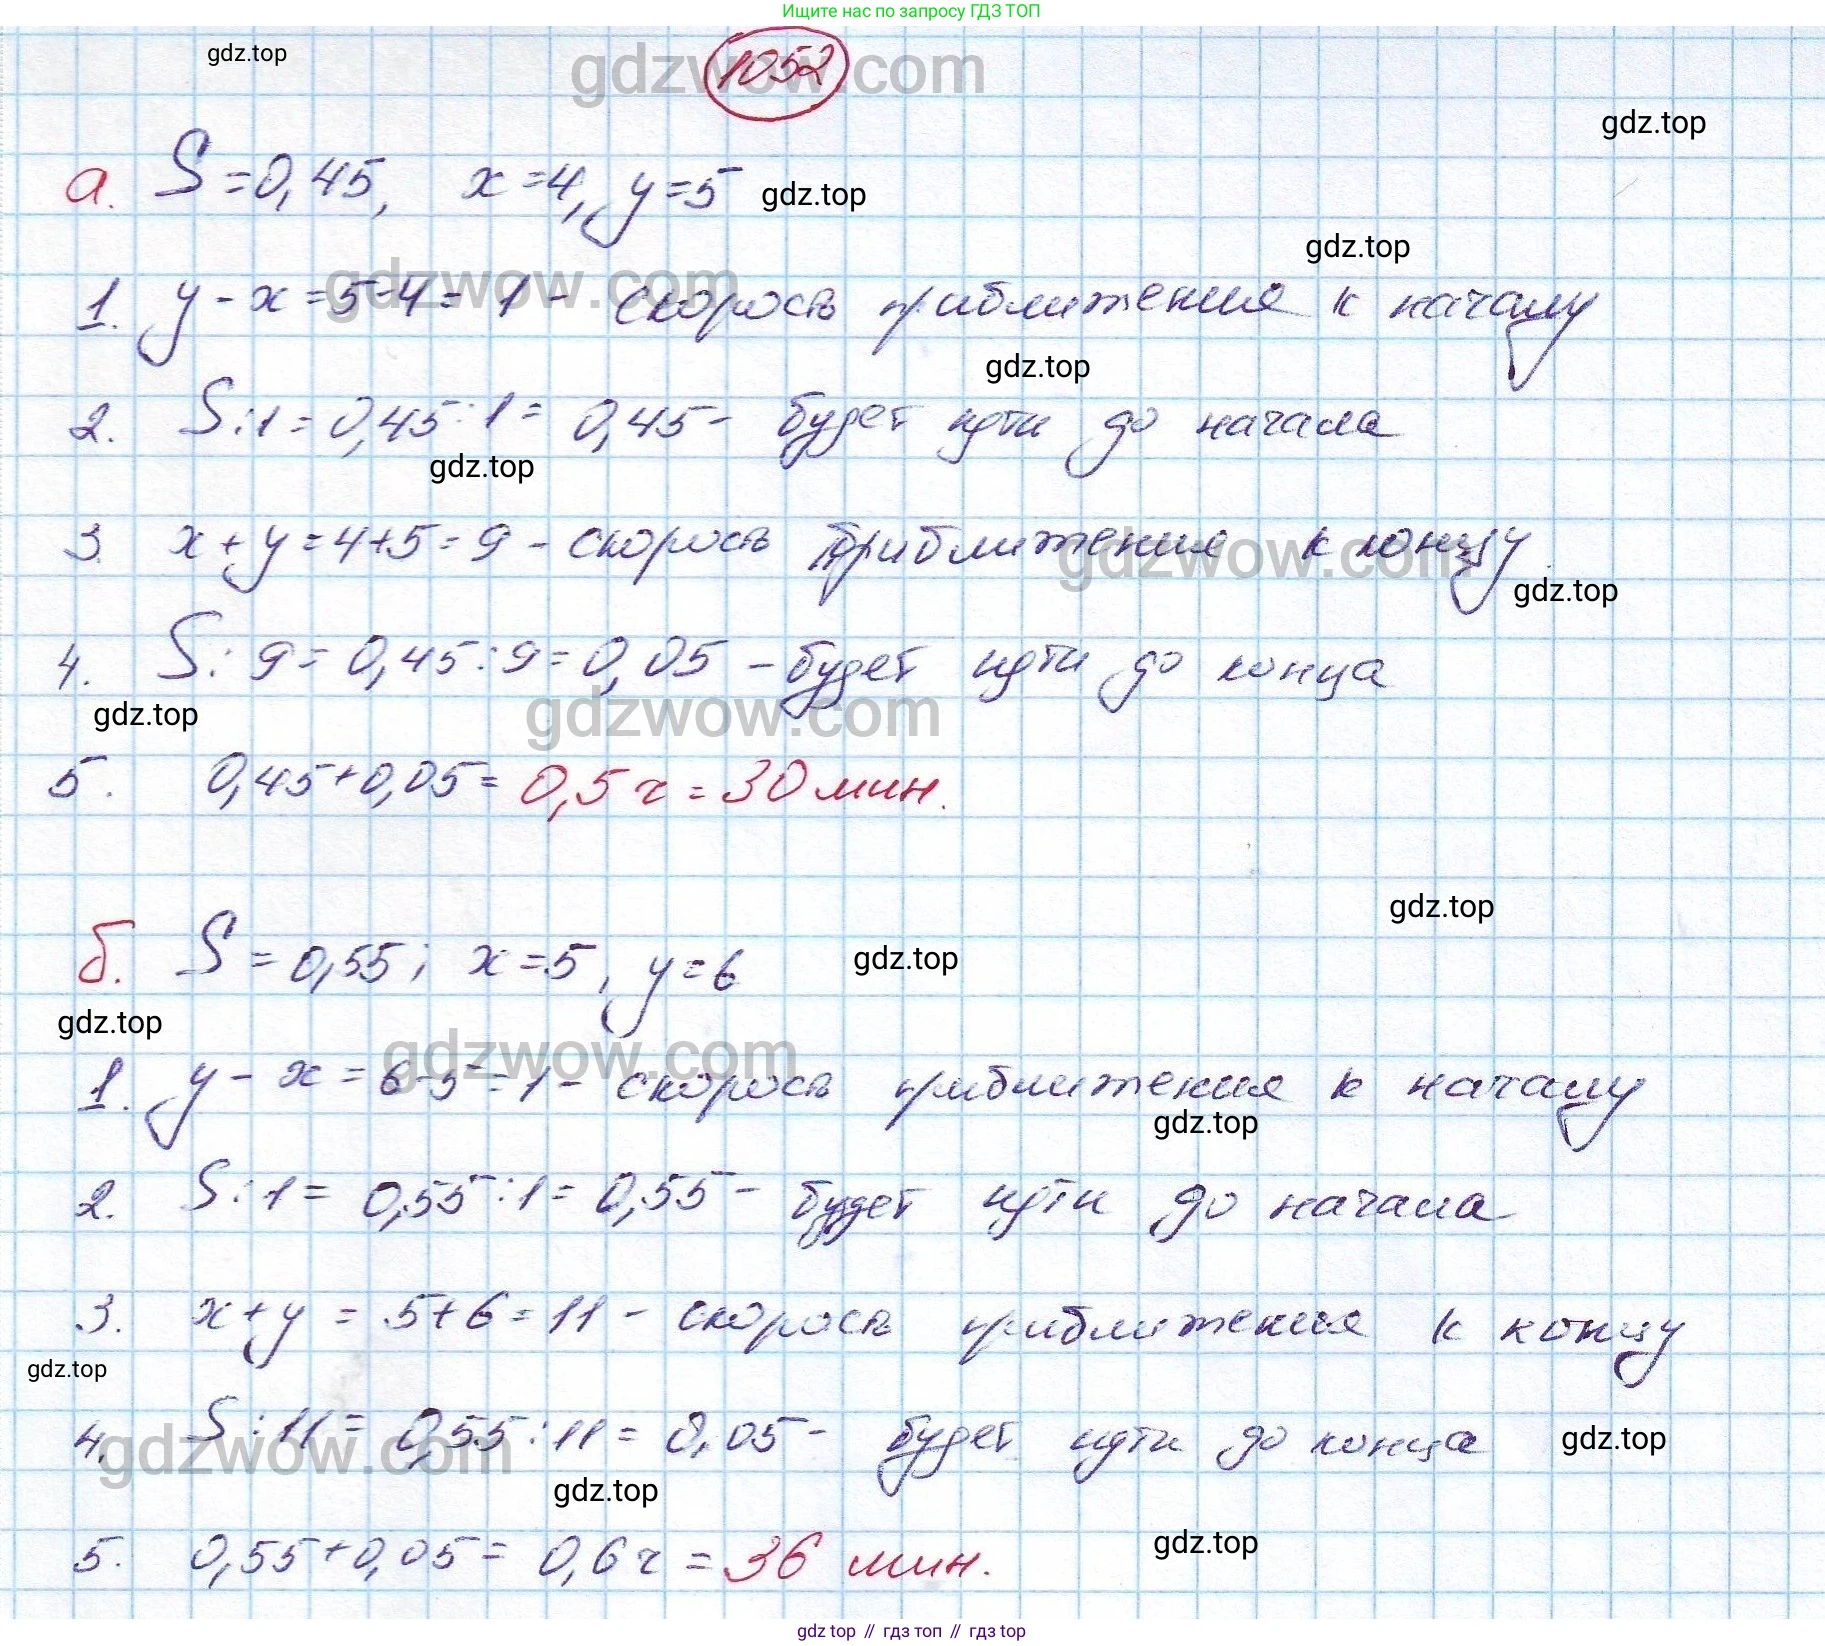 Ищите нас по запросу ГДЗ ТОП
gdz.top
gdzwow.com
1052
gdz.top
а. S=0,45, x=4, y=5
gdz.top
gdz.top
gdzwow.com
1. y-x=5-4=1- скорость приближения к началу
gdz.top
2. S:1=0,45:1=0,45- будет идти до начала
gdz.top
3. x+y=4+5=9- скорость приближения к концу
gdzwow.com
gdz.top
4. S:9=0,45:9=0,05 - будет идти до конца
gdz.top
gdzwow.com
5. 0,45+0,05=0,5ч=30 мин.
gdz.top
б. S=0,55; x=5, y=6
gdz.top
gdz.top
gdzwow.com
1. y-x=6-5=1- скорость приближения к началу
gdz.top
2. S:1=0,55:1=0,55- будет идти до начала
3. x+y=5+6=11- скорость приближения к концу
gdz.top
4. S:11=0,55:11=0,05- будет идти до конца
gdz.top
gdzwow.com
gdz.top
5. 0,55+0,05=0,6ч=36 мин.
gdz.top
gdz top // гдз топ // гдз top